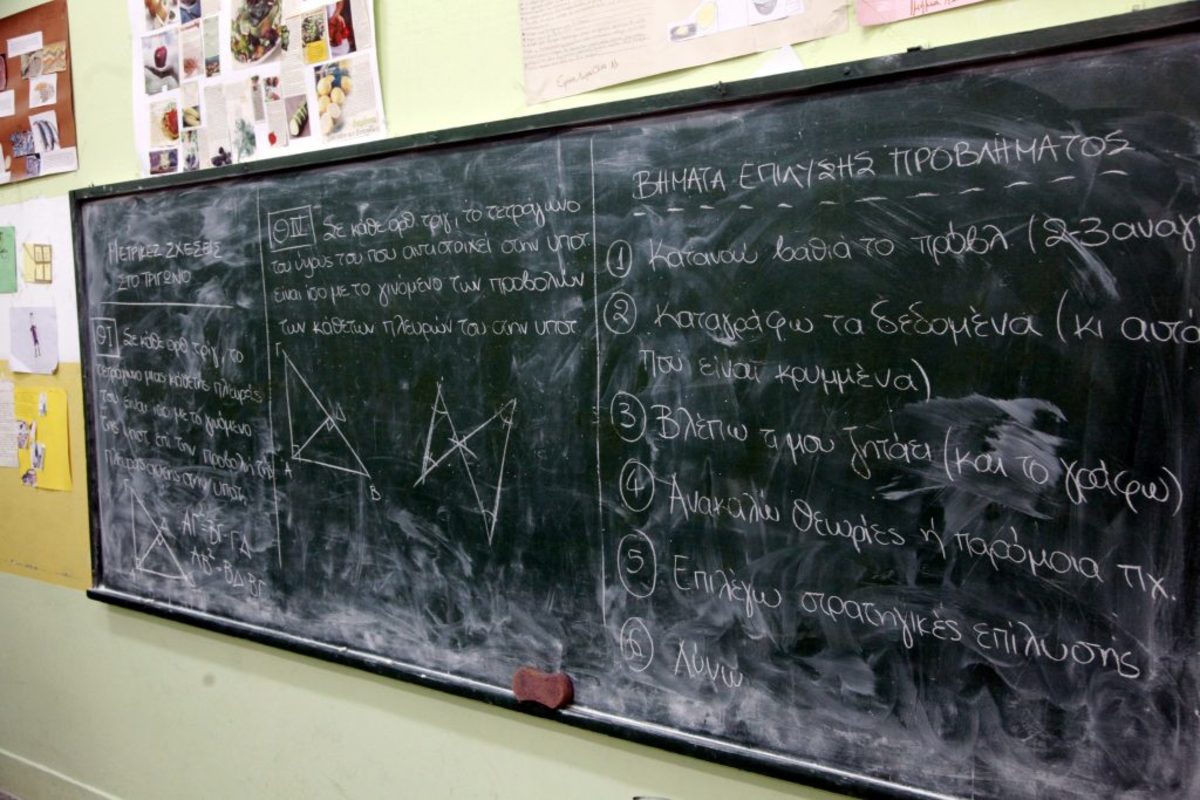 ΜΕΤΡΙΚΕΣ ΣΧΕΣΕΙΣ
ΣΤΟ ΤΡΙΓΩΝΟ
ΘΙ Σε κάθε ορθ τριγ, το
τετράγωνο μιας κάθετης πλευράς
του είναι ίσο με το γινόμενο
της υποτ. επί την προβολή της
πλευράς αυτής στην υποτ.
ΑΓ²=ΒΓ·ΓΔ
ΑΒ²=ΒΔ·ΒΓ
Σε κάθε ορθ τριγ, το τετράγωνο
του ύψους του που αντιστοιχεί στην υποτ.
είναι ίσο με το γινόμενο των προβολών
των κάθετων πλευρών του στην υποτ.
Γ
Δ
Α
Β
ΒΗΜΑΤΑ ΕΠΙΛΥΣΗΣ ΠΡΟΒΛΗΜΑΤΟΣ
① Κατανοώ βαθιά το πρόβλ (2-3 αναγ
② Καταγράφω τα δεδομένα (κι αυτά
που είναι κρυμμένα)
③ Βλέπω τι μου ζητάει (και το γράφω)
④ Ανακαλώ θεωρίες ή παρόμοια πχ.
⑤ Επιλέγω στρατηγικές επίλυσης
⑥ Λύνω